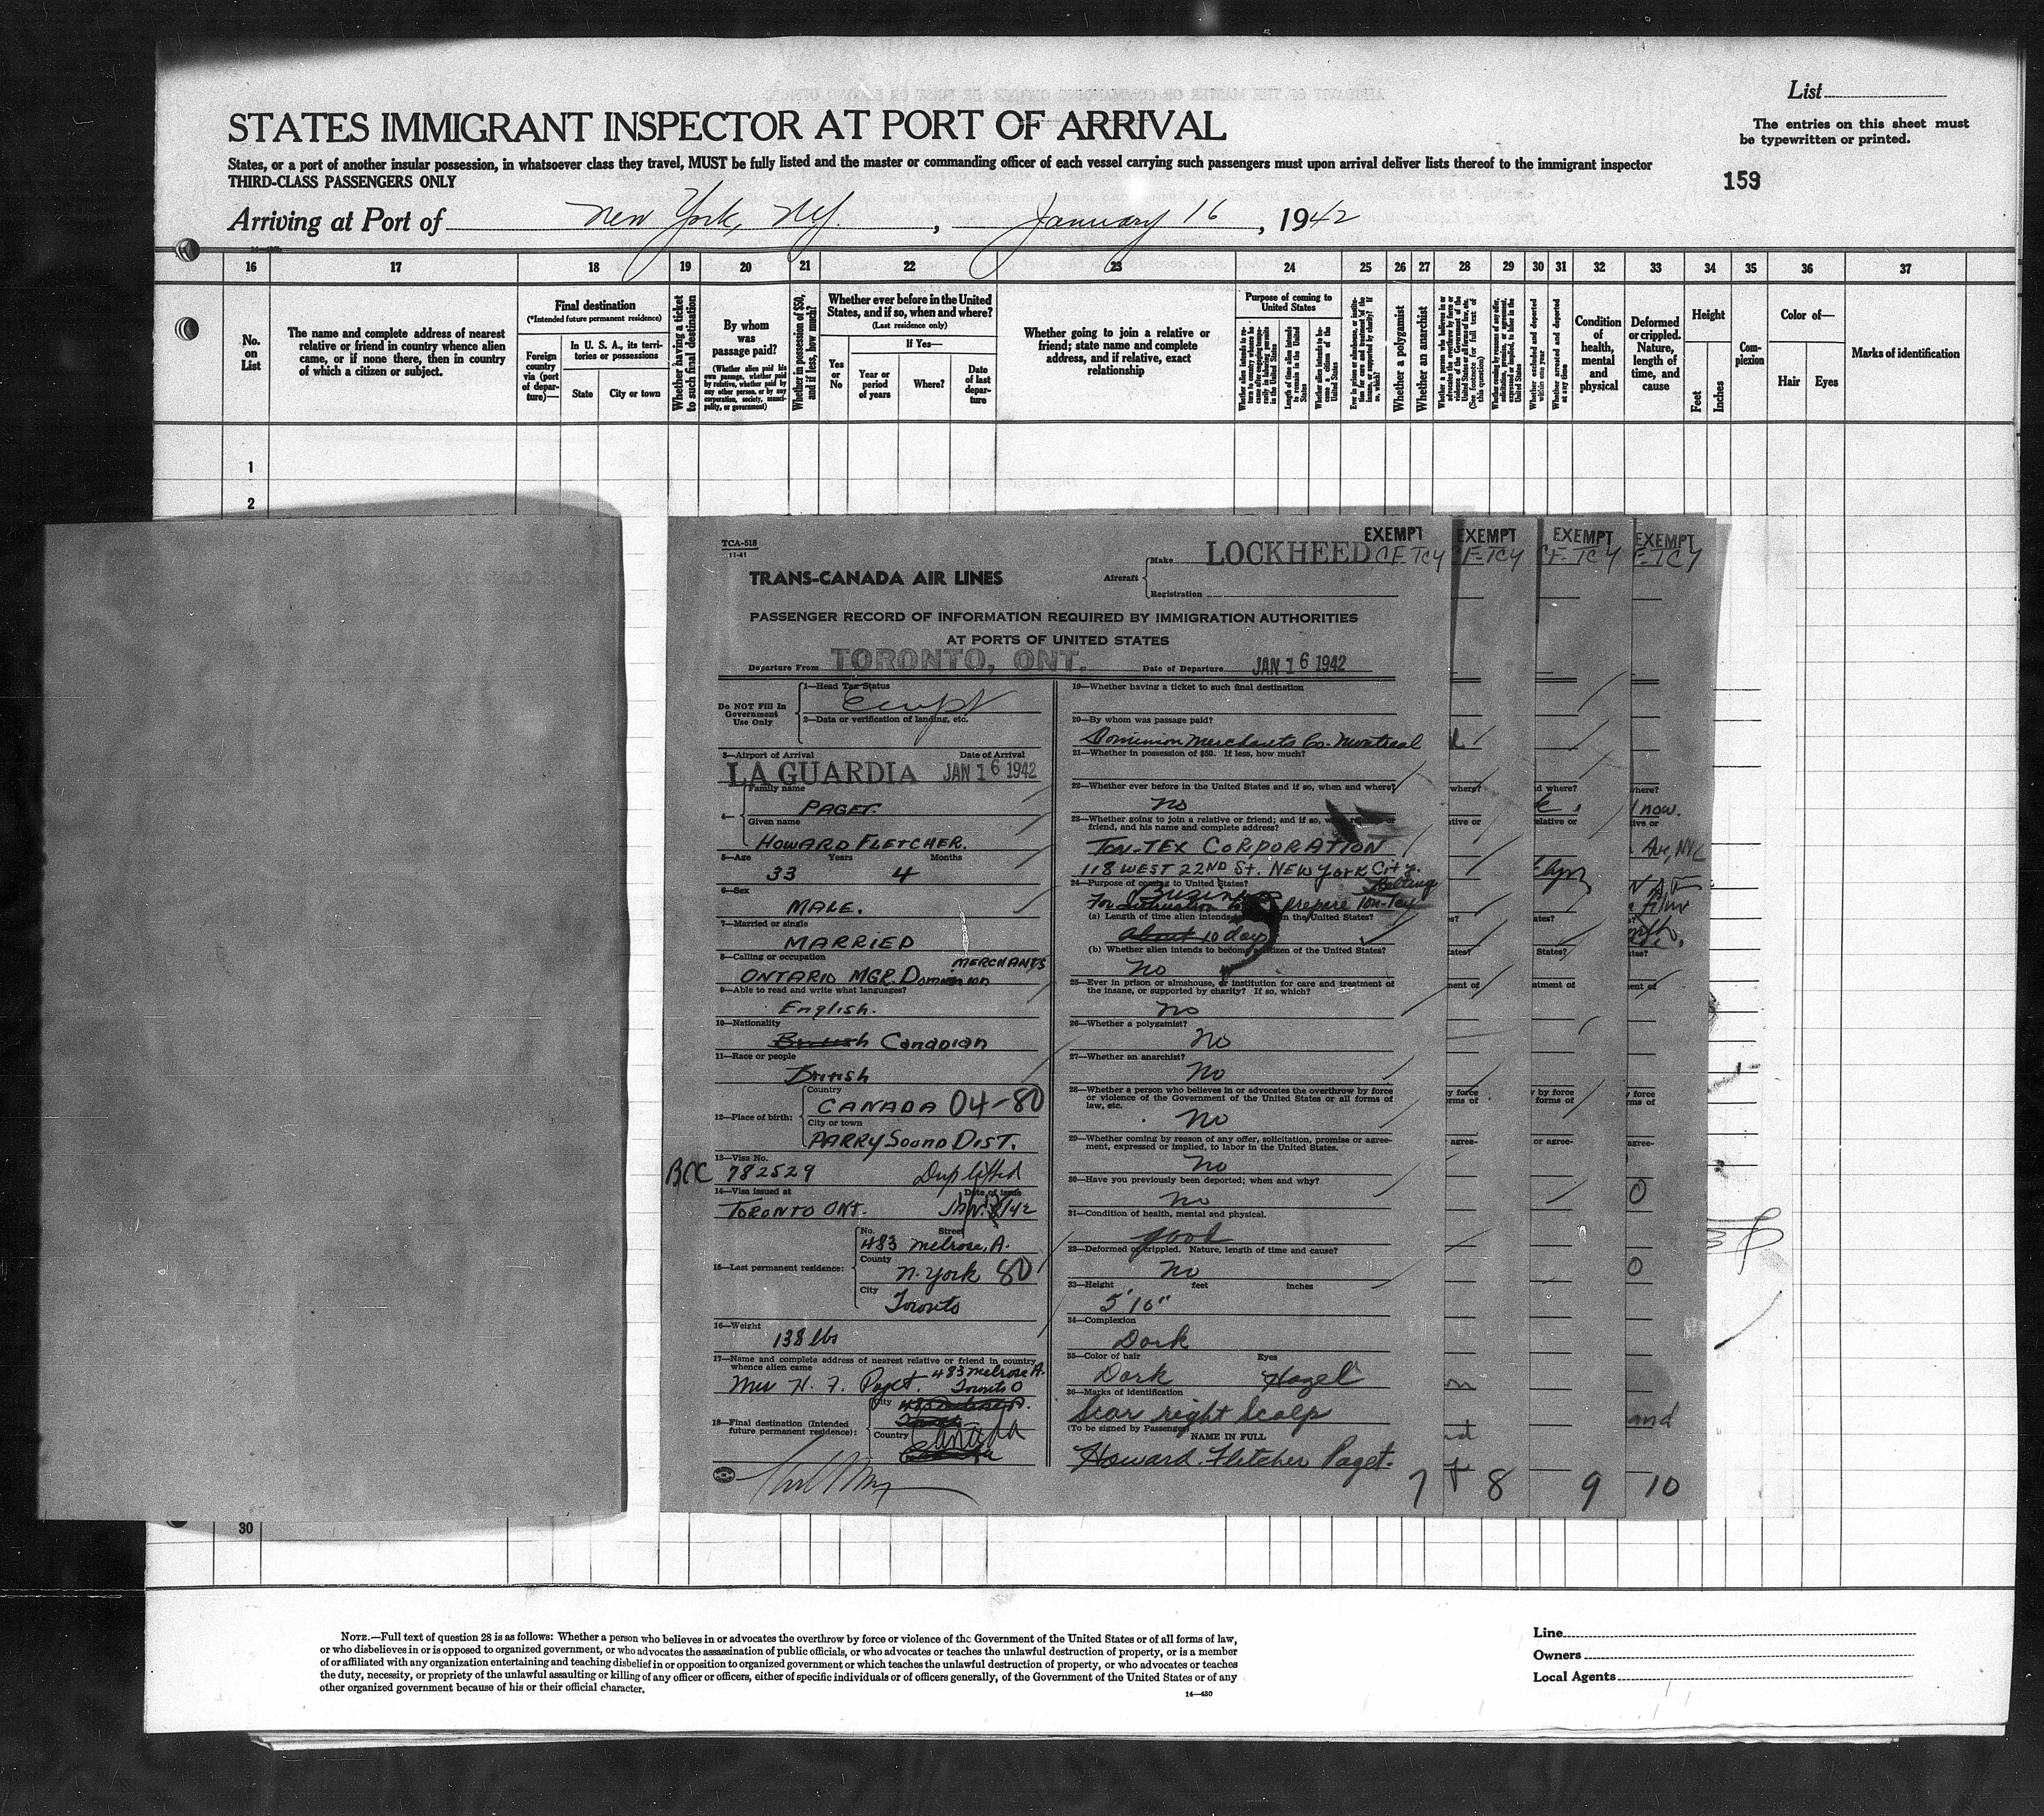 List
STATES IMMIGRANT INSPECTOR AT PORT OF ARRIVAL
The entries on this sheet must
be typewritten or printed.
States, or a port of another insular possession, in whatsoever class they travel, MUST be fully listed and the master or commanding officer of each vessel carrying such passengers must upon arrival deliver lists thereof to the immigrant inspector
THIRD-CLASS PASSENGERS ONLY
159
Arriving at Port of New York, NY. , January 16 , 1942
16 17 18 19 20 21 22 23 24 25 26 27 28 29 30 31 32 33 34 35 36 37
No. on List
The name and complete address of nearest relative or friend in country whence alien came, or if none there, then in country of which a citizen or subject.
Final destination
(*Intended future permanent residence)
Foreign country via (port of departure)—
In U. S. A., its territories or possessions
State
City or town
Whether having a ticket to such final destination
By whom was passage paid?
(Whether alien paid his own passage, whether paid by relative, whether paid by any other person, or by any corporation, society, municipality, or government)
Whether in possession of $50, and if less, how much?
Whether ever before in the United States, and if so, when and where?
(Last residence only)
Yes or No
If Yes—
Year or period of years
Where?
Date of last departure
Whether going to join a relative or friend; state name and complete address, and if relative, exact relationship
Purpose of coming to United States
Length of time alien intends to remain in the United States
Whether a polygamist
Whether an anarchist
Condition of health, mental and physical
Deformed or crippled. Nature, length of time, and cause
Height
Feet
Inches
Complexion
Color of—
Hair
Eyes
Marks of identification
1
2
TCA-518
11-41
TRANS-CANADA AIR LINES
Aircraft
Make LOCKHEED CF-TCY
EXEMPT
Registration
PASSENGER RECORD OF INFORMATION REQUIRED BY IMMIGRATION AUTHORITIES
AT PORTS OF UNITED STATES
Departure From TORONTO, ONT. Date of Departure JAN 16 1942
Do NOT Fill In
Government
Use Only
1—Head Tax Status
2—Data or verification of landing, etc.
3—Airport of Arrival Date of Arrival
LA GUARDIA JAN 16 1942
4—
Family name
PAGET.
Given name
HOWARD FLETCHER.
5—Age Years Months
33 4
6—Sex
MALE.
7—Married or single
MARRIED
8—Calling or occupation
MERCHANTS
ONTARIO MGR. Dominion
9—Able to read and write what languages?
English.
10—Nationality
British Canadian
11—Race or people
British
12—Place of birth:
Country
CANADA 04-80
City or town
PARRY SOUND DIST.
13—Visa No.
BCC 782529 Dup lifted
14—Visa issued at Date of issue
TORONTO ONT.
15—Last permanent residence:
No. Street
483 Melrose, A.
County
N. York 80
City
Toronto
16—Weight
138 lbs
17—Name and complete address of nearest relative or friend in country
whence alien came
Mrs H. F. Paget. 483 Melrose A.
Toronto O
18—Final destination (Intended
future permanent residence):
City
Country
Canada
19—Whether having a ticket to such final destination
20—By whom was passage paid?
Dominion Merchants Co. Montreal
21—Whether in possession of $50. If less, how much?
22—Whether ever before in the United States and if so, when and where?
No
23—Whether going to join a relative or friend; and if so, what relative or
friend, and his name and complete address?
TON-TEX CORPORATION
118 WEST 22ND St. NEW YORK City.
24—Purpose of coming to United States?
Business
For instruction to prepare Ton-Tex Belting
(a) Length of time alien intends in the United States?
About 10 days
(b) Whether alien intends to become citizen of the United States?
No
25—Ever in prison or almshouse, or institution for care and treatment of
the insane, or supported by charity? If so, which?
No
26—Whether a polygamist?
No
27—Whether an anarchist?
No
28—Whether a person who believes in or advocates the overthrow by force
or violence of the Government of the United States or all forms of
law, etc.
No
29—Whether coming by reason of any offer, solicitation, promise or agree-
ment, expressed or implied, to labor in the United States.
No
30—Have you previously been deported; when and why?
No
31—Condition of health, mental and physical.
good
32—Deformed or crippled. Nature, length of time and cause?
No
33—Height feet inches
5'10"
34—Complexion
Dark
35—Color of hair Eyes
Dark Hazel
36—Marks of identification
Scar right Scalp
(To be signed by Passenger)
NAME IN FULL
Howard Fletcher Paget.
7
EXEMPT
8
EXEMPT
9
EXEMPT
10
30
NOTE.—Full text of question 28 is as follows: Whether a person who believes in or advocates the overthrow by force or violence of the Government of the United States or of all forms of law,
or who disbelieves in or is opposed to organized government, or who advocates the assassination of public officials, or who advocates or teaches the unlawful destruction of property, or is a member
of or affiliated with any organization entertaining and teaching disbelief in or opposition to organized government or which teaches the unlawful destruction of property, or who advocates or teaches
the duty, necessity, or propriety of the unlawful assaulting or killing of any officer or officers, either of specific individuals or of officers generally, of the Government of the United States or of any
other organized government because of his or their official character.
14—430
Line
Owners
Local Agents